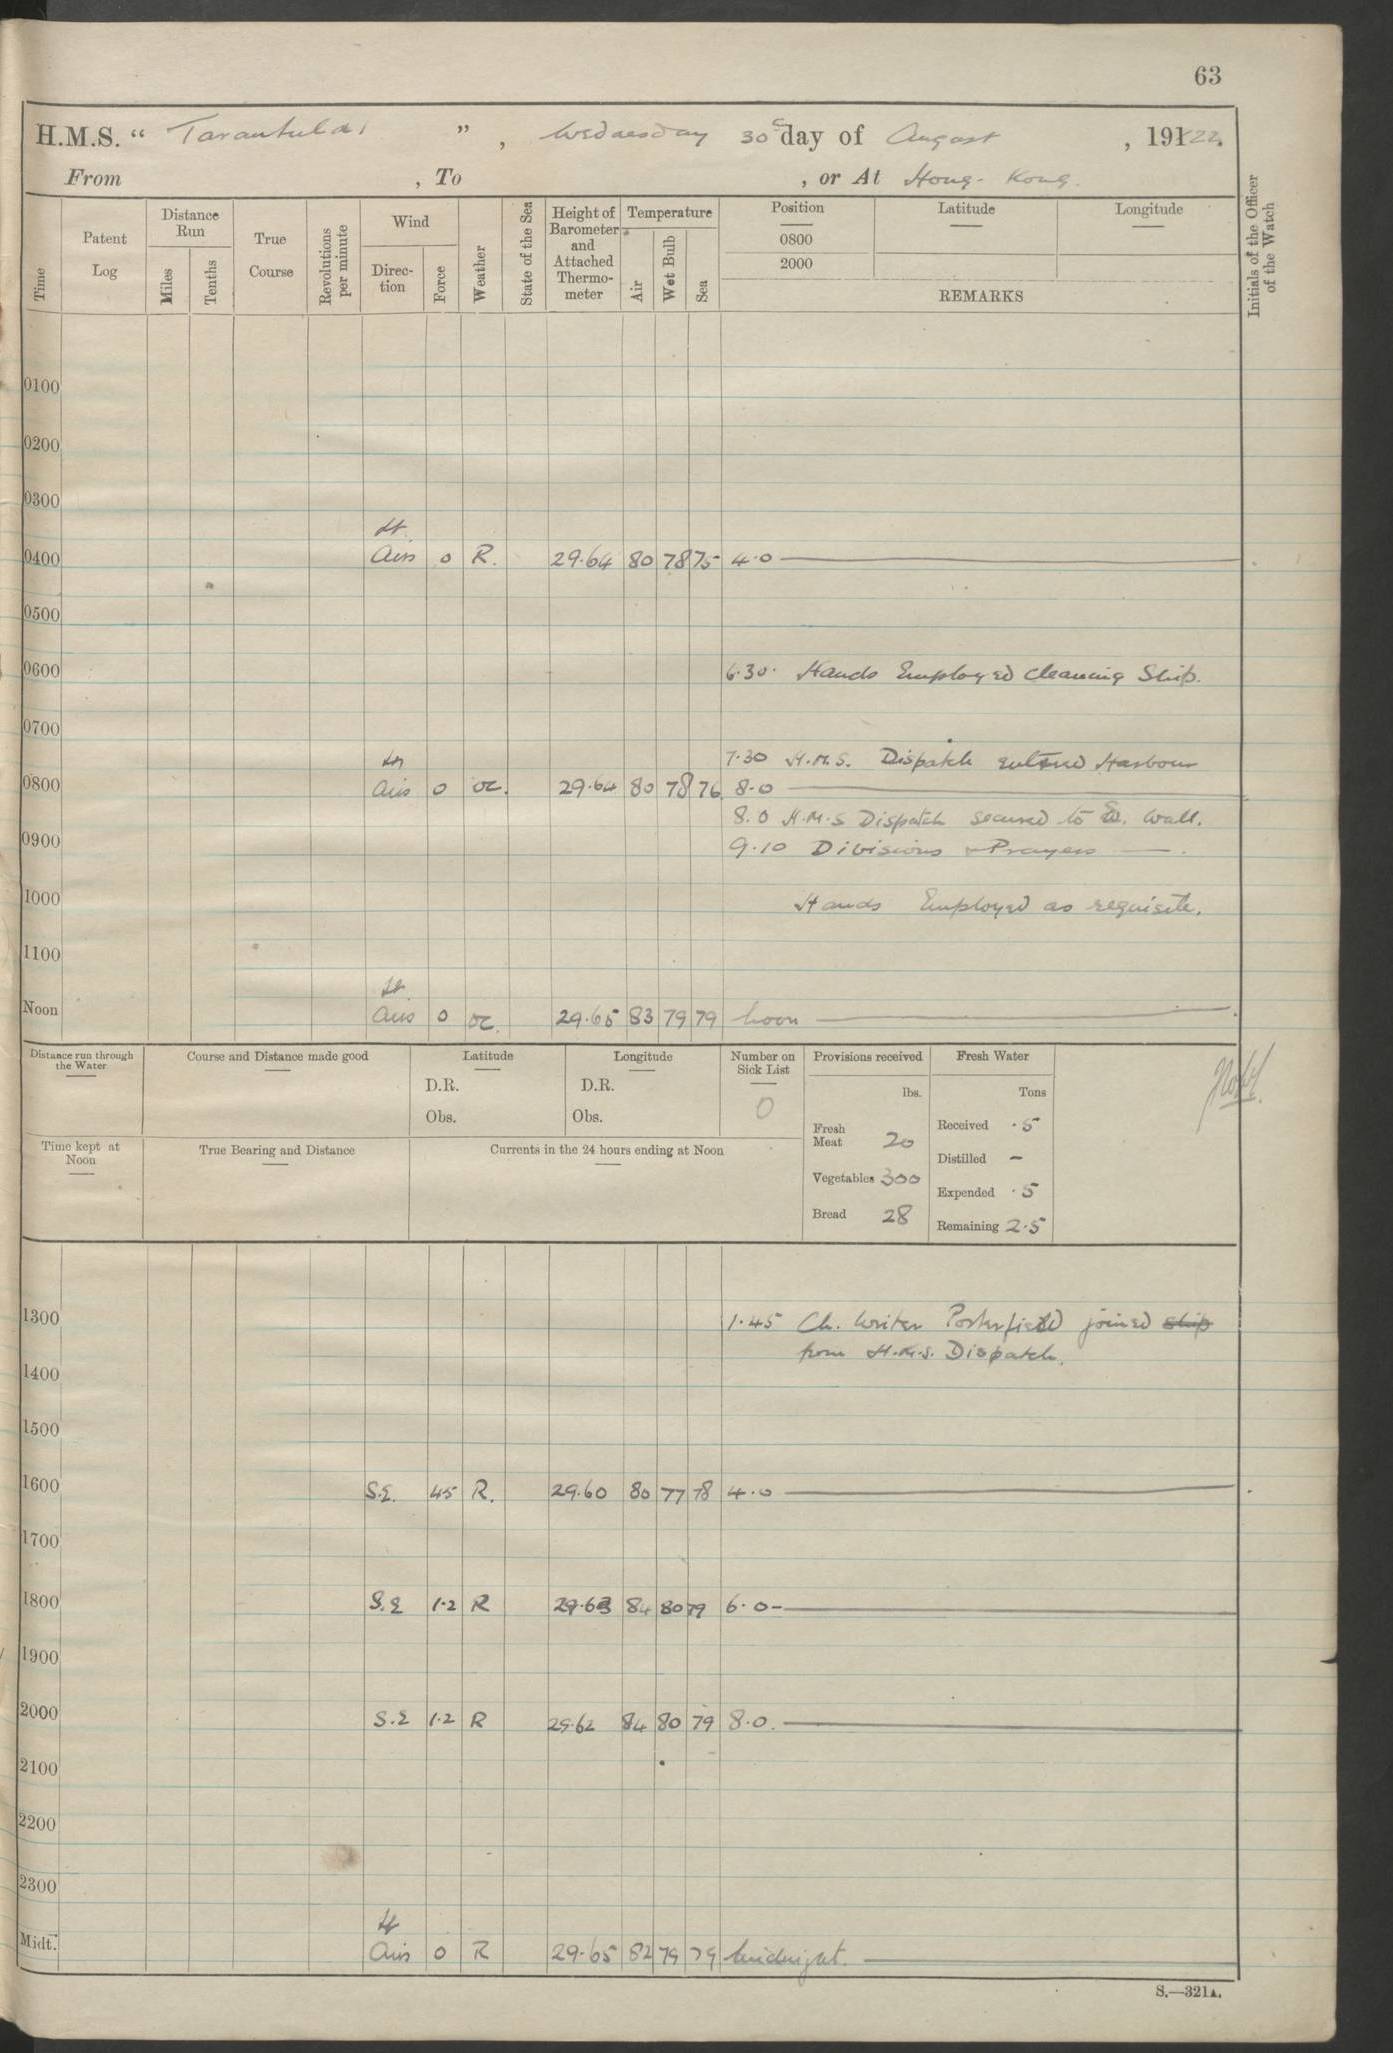 63
H.M.S. " Tarantula ", Wednesday 30th day of August, 1922.
From , To , or At Hong-Kong.
Time
Patent Log
Distance Run
Miles
Tenths
True Course
Revolutions per minute
Wind
Direction
Force
Weather
State of the Sea
Height of Barometer and Attached Thermometer
Temperature
Air
Wet Bulb
Sea
Position
0800
2000
Latitude
Longitude
REMARKS
Initials of the Officer of the Watch
0100
0200
0300
Lt.
0400 Airs 0 R. 29.64 80 78 75 4.0
0500
0600
6.30. Hands Employed Cleaning Ship.
0700
Lt 7.30 H.M.S. Dispatch entered Harbour
0800 airs 0 oc. 29.64 80 78 76 8.0
8.0 H.M.S Dispatch secured to W. Wall.
0900
9.10 Divisions & Prayers
1000 Hands Employed as requisite.
1100
Lt.
Noon Airs 0 oc. 29.65 83 79 79 Noon
Distance run through the Water
Course and Distance made good
Latitude
D.R.
Obs.
Longitude
D.R.
Obs.
Number on Sick List
0
Provisions received
lbs.
Fresh Meat 20
Vegetables 300
Bread 28
Fresh Water
Tons
Received .5
Distilled –
Expended .5
Remaining 2.5
Time kept at Noon
True Bearing and Distance
Currents in the 24 hours ending at Noon
1300 1.45 Ch. Writer Porterfield joined ship
from H.M.S. Dispatch.
1400
1500
1600 S.E. 45 R. 29.60 80 77 78 4.0
1700
1800 S.E 1.2 R 29.63 84 80 79 6.0
1900
2000 S.E 1.2 R 29.62 84 80 79 8.0.
2100
2200
2300
Lt
Midt. Airs 0 R 29.65 82 79 79 Midnight.
S.—321A.